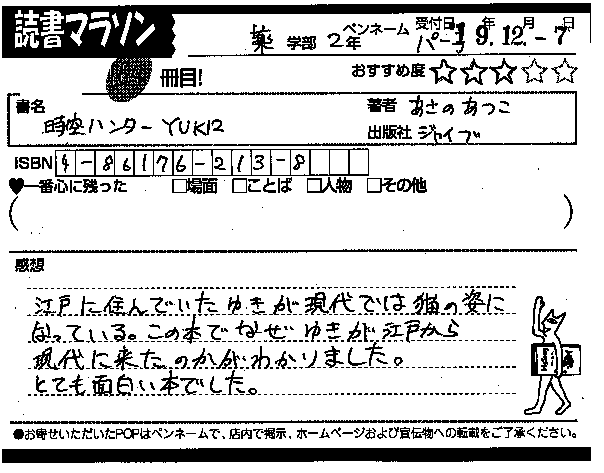 読書マラソン
冊目!
薬 学部 2年
ペンネーム
受付日 年 月 日
19.12.-7
おすすめ度 ★★★☆☆
書名
時空ハンターYUKI2
著者 あさのあつこ
出版社 ジャイブ
ISBN 4-86176-213-8
♥一番心に残った □場面 □ことば □人物 □その他
( )
感想
江戸に住んでいたゆきが現代では猫の姿に
なっている。この本でなぜゆきが江戸から
現代に来たのかがわかりました。
とても面白い本でした。
●お寄せいただいたPOPはペンネームで、店内で掲示、ホームページおよび宣伝物への転載をご了承ください。